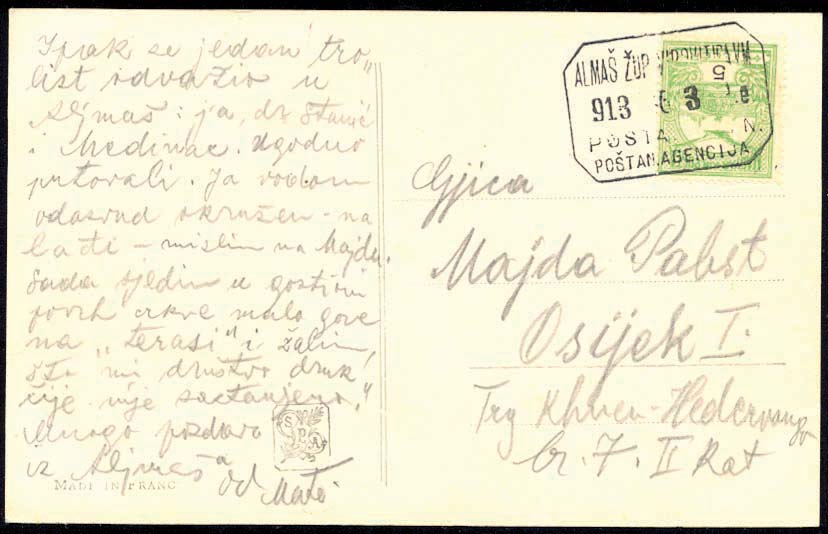 Ipak se jedan „tro
list odvažio u
Aljmaš: ja, dr Stanić
i Medinac. Ugodno
putovali. Ja vodom
odasvud okružen - na
lađi - mislim na Majdu.
Sada sjedim u gostioni
povrh crkve malo gore
na „terasi" i žalim,
što mi društvo druk
čije nije sastavljeno."
Mnogo pozdrava
iz Aljmaša
od Mate
MADE IN FRANC
ALMAŠ ŽUP
913 3
POŠTAN.AGENCIJA
5
Gjica
Majda Pabst
Osijek I.
Trg Khuen-Hedervarya
br. 7. II kat